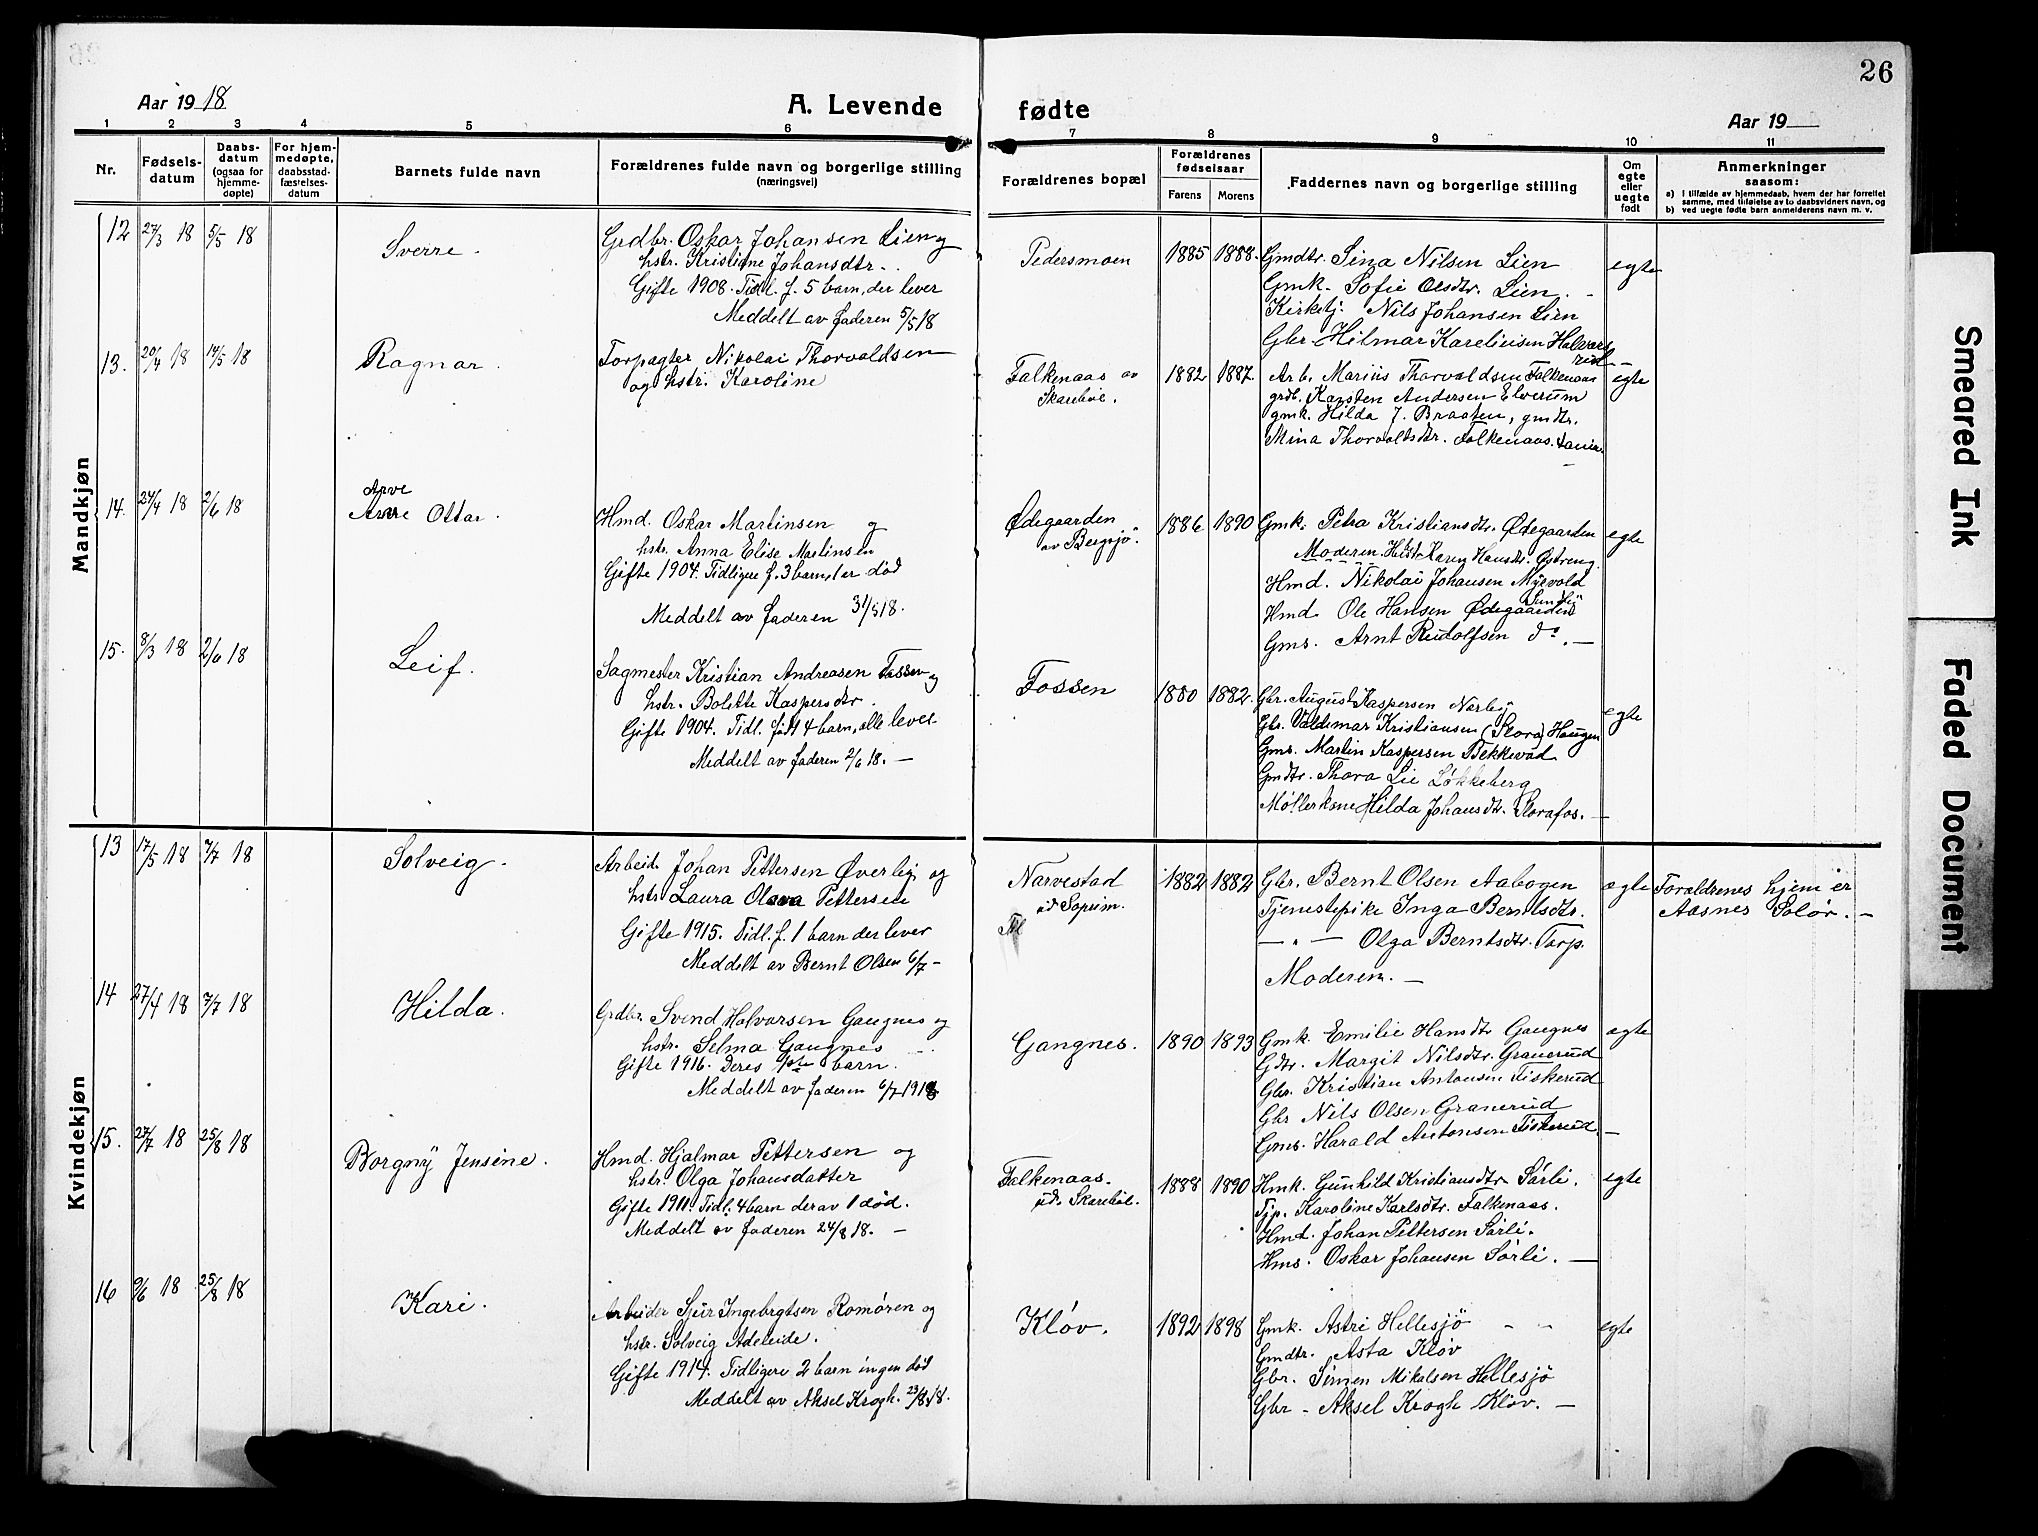 26
Aar 1918
A. Levende fødte
Aar 19
1 2 3 4 5 6 7 8 9 10 11
Nr.
Fødsels-
datum
Daabs-
datum
(ogsaa for
hjemme-
døpte)
For hjem-
medøpte,
daabsstad-
fæstelses-
datum
Barnets fulde navn
Forældrenes fulde navn og borgerlige stilling
(næringsvei)
Forældrenes bopæl
Forældrenes
fødselsaar
Farens Morens
Faddernes navn og borgerlige stilling
Om
egte
eller
uegte
født
Anmerkninger
saasom:
a) I tilfælde av hjemmedaab, hvem der har forrettet
samme, med tilføielse av to daabsvidners navn, og
b) ved uegte fødte barn anmelderens navn m. v.
Mandkjøn
12 27/3 18 5/5 18
Sverre.
Grdbr. Oskar Johansen Lien og
hstr. Kristine Johansdtr.
Gifte 1908. Tidl. f. 5 barn, der lever
Meddelt av faderen 5/5 18
Pedersmoen
1885 1888.
Gmdtr. Sina Nilsen Lien
Gmk. Sofie Olsdtr. Lien.
Kirketj. Nils Johansen Lien
Gbr. Hilmar Kareliusen Halvors
rud
egte
13. 20/4 18 14/5 18
Ragnar.
Forpagter Nikolai Thorvaldsen
og hstr. Karoline
Falkenaas av
Skarebøl.
1882 1887.
Arb. Marius Thorvaldsen Falkenaas
grdb. Karsten Andersen Elverum
gmk. Hilda J. Braaten, gmdtr.
Mina Thorvaltsdtr. Falkenaas.
egte
14. 24/4 18 2/6 18
Arve
Arve Ottar.
Hmd. Oskar Martinsen og
hstr. Anna Elise Martinsen
Gifte 1904. Tidligere f. 3 barn, 1 er död
Meddelt av faderen 31/5 18.
Ødegaarden
av Bergsjø.
1886 1890
Gmk. Petra Kristiansdtr. Ødegaarden
Moderen. Hstr. Karen Hansdtr. Østreng.
Hmd. Nikolai Johansen Myrvold
Hmd. Ole Hansen Ødegaarden
Gms. Arnt Rudolfsen do. —
egte
15. 8/3 18 2/6 18
Leif.
Sagmester Kristian Andreasen Fossen og
hstr. Bolette Kaspersdtr.
Gifte 1904. Tidl. født 4 barn, alle lever
Meddelt av faderen 2/6 18. —
Fossen
1880 1882.
Gbr. August Kaspersen Narbø
Gbr. Valdemar Kristiansen (Stora) Haugen
Gms. Martin Kaspersen Bekkevad
Gmdtr. Thora Lie Løkkeberg
Møllerkone Hilda Johansdtr. Storafos. —
egte
Kvindekjøn
13 17/5 18 7/7 18
Solveig.
Arbeid. Johan Pettersen Øverlie og
hstr Laura Olava Pettersen
Gifte 1915. Tidl. f. 1 barn der lever
Meddelt av Bernt Olsen 6/7 —
Narvestad
1882 1882
Gbr. Bernt Olsen Aabogen
Tjenestepike Inga Berntsdtr.
— " — Olga Berntsdtr. Torp.
Moderen. —
egte
Forældrenes hjem er
Aasnes Solör. —
14 27/4 18 7/7 18
Hilda.
Grdbr. Svend Halvorsen Gangnes og
hstr. Selma Gangnes
Gifte 1916. Deres 1ste barn.
Meddelt av faderen 6/7 1918
Gangnes.
1890 1893
Gmk. Emilie Hansdtr Gangnes
Gdtr. Margit Nilsdtr. Granerud
Gbr. Kristian Antonsen Fiskerud
Gbr Nils Olsen Granerud
Gms. Harald Antonsen Fiskerud. —
egte
15. 27/7 18 25/8 18
Borgny Jensine.
Hmd. Hjalmar Pettersen og
hstr. Olga Johansdatter
Gifte 1911. Tidl. 4 barn derav 1 død.
Meddelt av faderen 24/8 18. —
Falkenaas.
u. Skarebøl.
1888 1890
Hmk. Gunhild Kristiansdtr Sörli.
Tjp. Karoline Karlsdtr. Falkenaas.
Hmd. Johan Pettersen Sörli.
Hms. Oskar Johansen Sörli. —
egte
16 9/6 18 25/8 18
Kari.
Arbeider Sjur Ingebrgtsen Romören og
hstr. Solveig Adeleide.
Gifte 1914. Tidligere 2 barn ingen död
Meddelt av Aksel Krogh. 23/8 18.
Kløv.
1892 1898
Gmk. Astri Hellesjö
Gmdtr. Asta Kløv
Gbr. Simen Mikalsen Hellesjö
Gbr - Aksel Krogh Kløv. —
egte
Smeared Ink
Faded Document